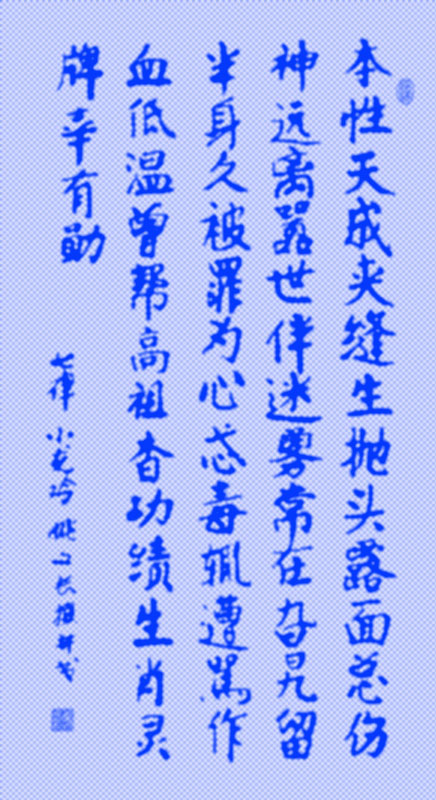 本性天成夹缝生抛头露面总伤
神远离嚣世伴迷雾常在旮旯留
半身久被罪为心忒毒辄遭骂作
血低温曾帮高祖查功绩生肖灵
牌幸有勋
七律 小龙吟